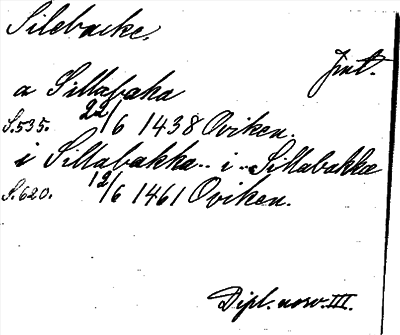 Silebacke.
Jmt.
a Sillabaka
S.535. 22/6 1438 Oviken.
i Sillabakka.. i.. Sillabakka
S.620. 12/6 1461 Oviken.
Dipl. norv. III.